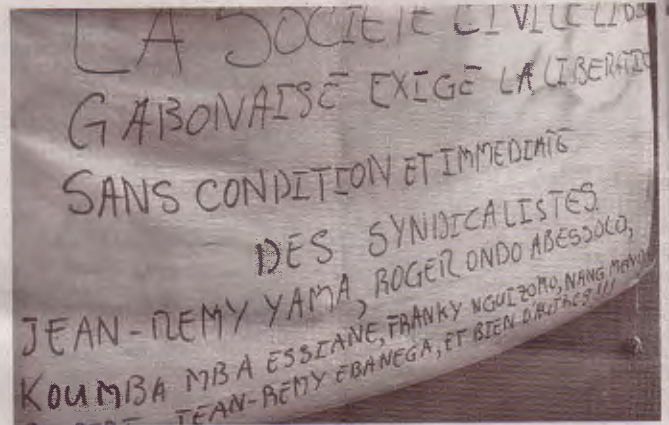 LA SOCIETE CIVILE
GABONAISE EXIGE LA
SANS CONDITION ET IMMEDIATE
DES SYNDICALISTES
JEAN-REMY YAMA, ROGER ONDO ABESSOLO,
KOUMBA MBA ESSIANE, FRANKY NGUIZOMO, NANG
JEAN-REMY EBANEGA, ET BIEN D'AUTRES !!!